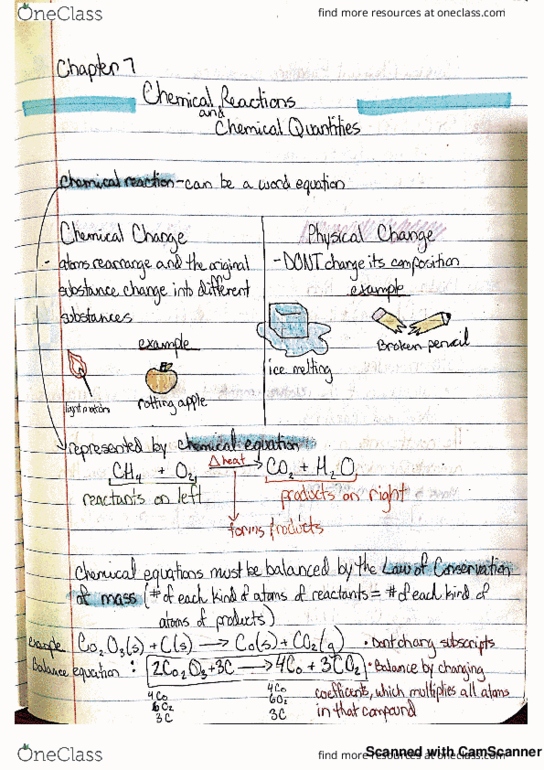 OneClass
find more resources at oneclass.com
Chapter 7
Chemical Reactions
and
Chemical Quantities
Chemical reaction - can be a word equation
Chemical Change
- atoms rearrange and the original
substance change into different
substances
example
rotting apple
Physical Change
- DONT change its composition
example
ice melting
Broken pencil
represented by chemical equation
CH4 + O2 Δheat → CO2 + H2O
reactants on left
products on right
forms products
Chemical equations must be balanced by the Law of Conservation
of mass (# of each kind of atoms of reactants = # of each kind of
atoms of products)
example Co2O3(s) + C(s) → Co(s) + CO2(g) • Dont chang subscripts
Balance equation : 2Co2O3 + 3C → 4Co + 3CO2 • Balance by changing
4Co 4Co coefficients, which multiplies all atoms
6O2 6O2 in that compound
3C 3C
OneClass
find more resources at oneclass.com
Scanned with CamScanner